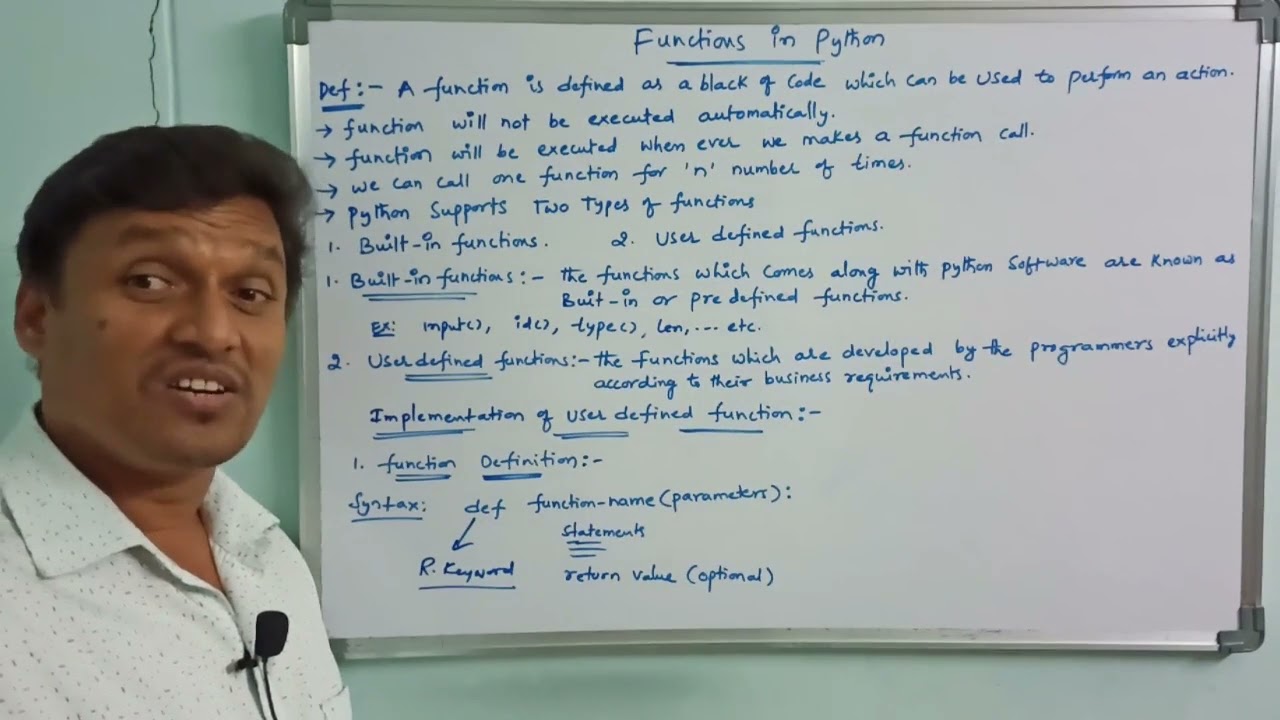 Functions in Python
Def:- A function is defined as a black of Code which can be used to perform an action.
→ function will not be executed automatically.
→ function will be executed when ever we makes a function call.
→ we can call one function for 'n' number of times.
→ Python Supports Two Types of functions
1. Built-in functions. 2. User defined functions.
1. Built-in functions:- the functions which comes along with python Software are known as
Buit-in or pre defined functions.
Ex: input(), id(), type(), len,... etc.
2. User defined functions:- the functions which are developed by the programmers explicitly
according to their business requirements.
Implementation of user defined function:-
1. function Definition:-
Syntax: def function-name(parameters):
Statements
R. Keyword return value (optional)